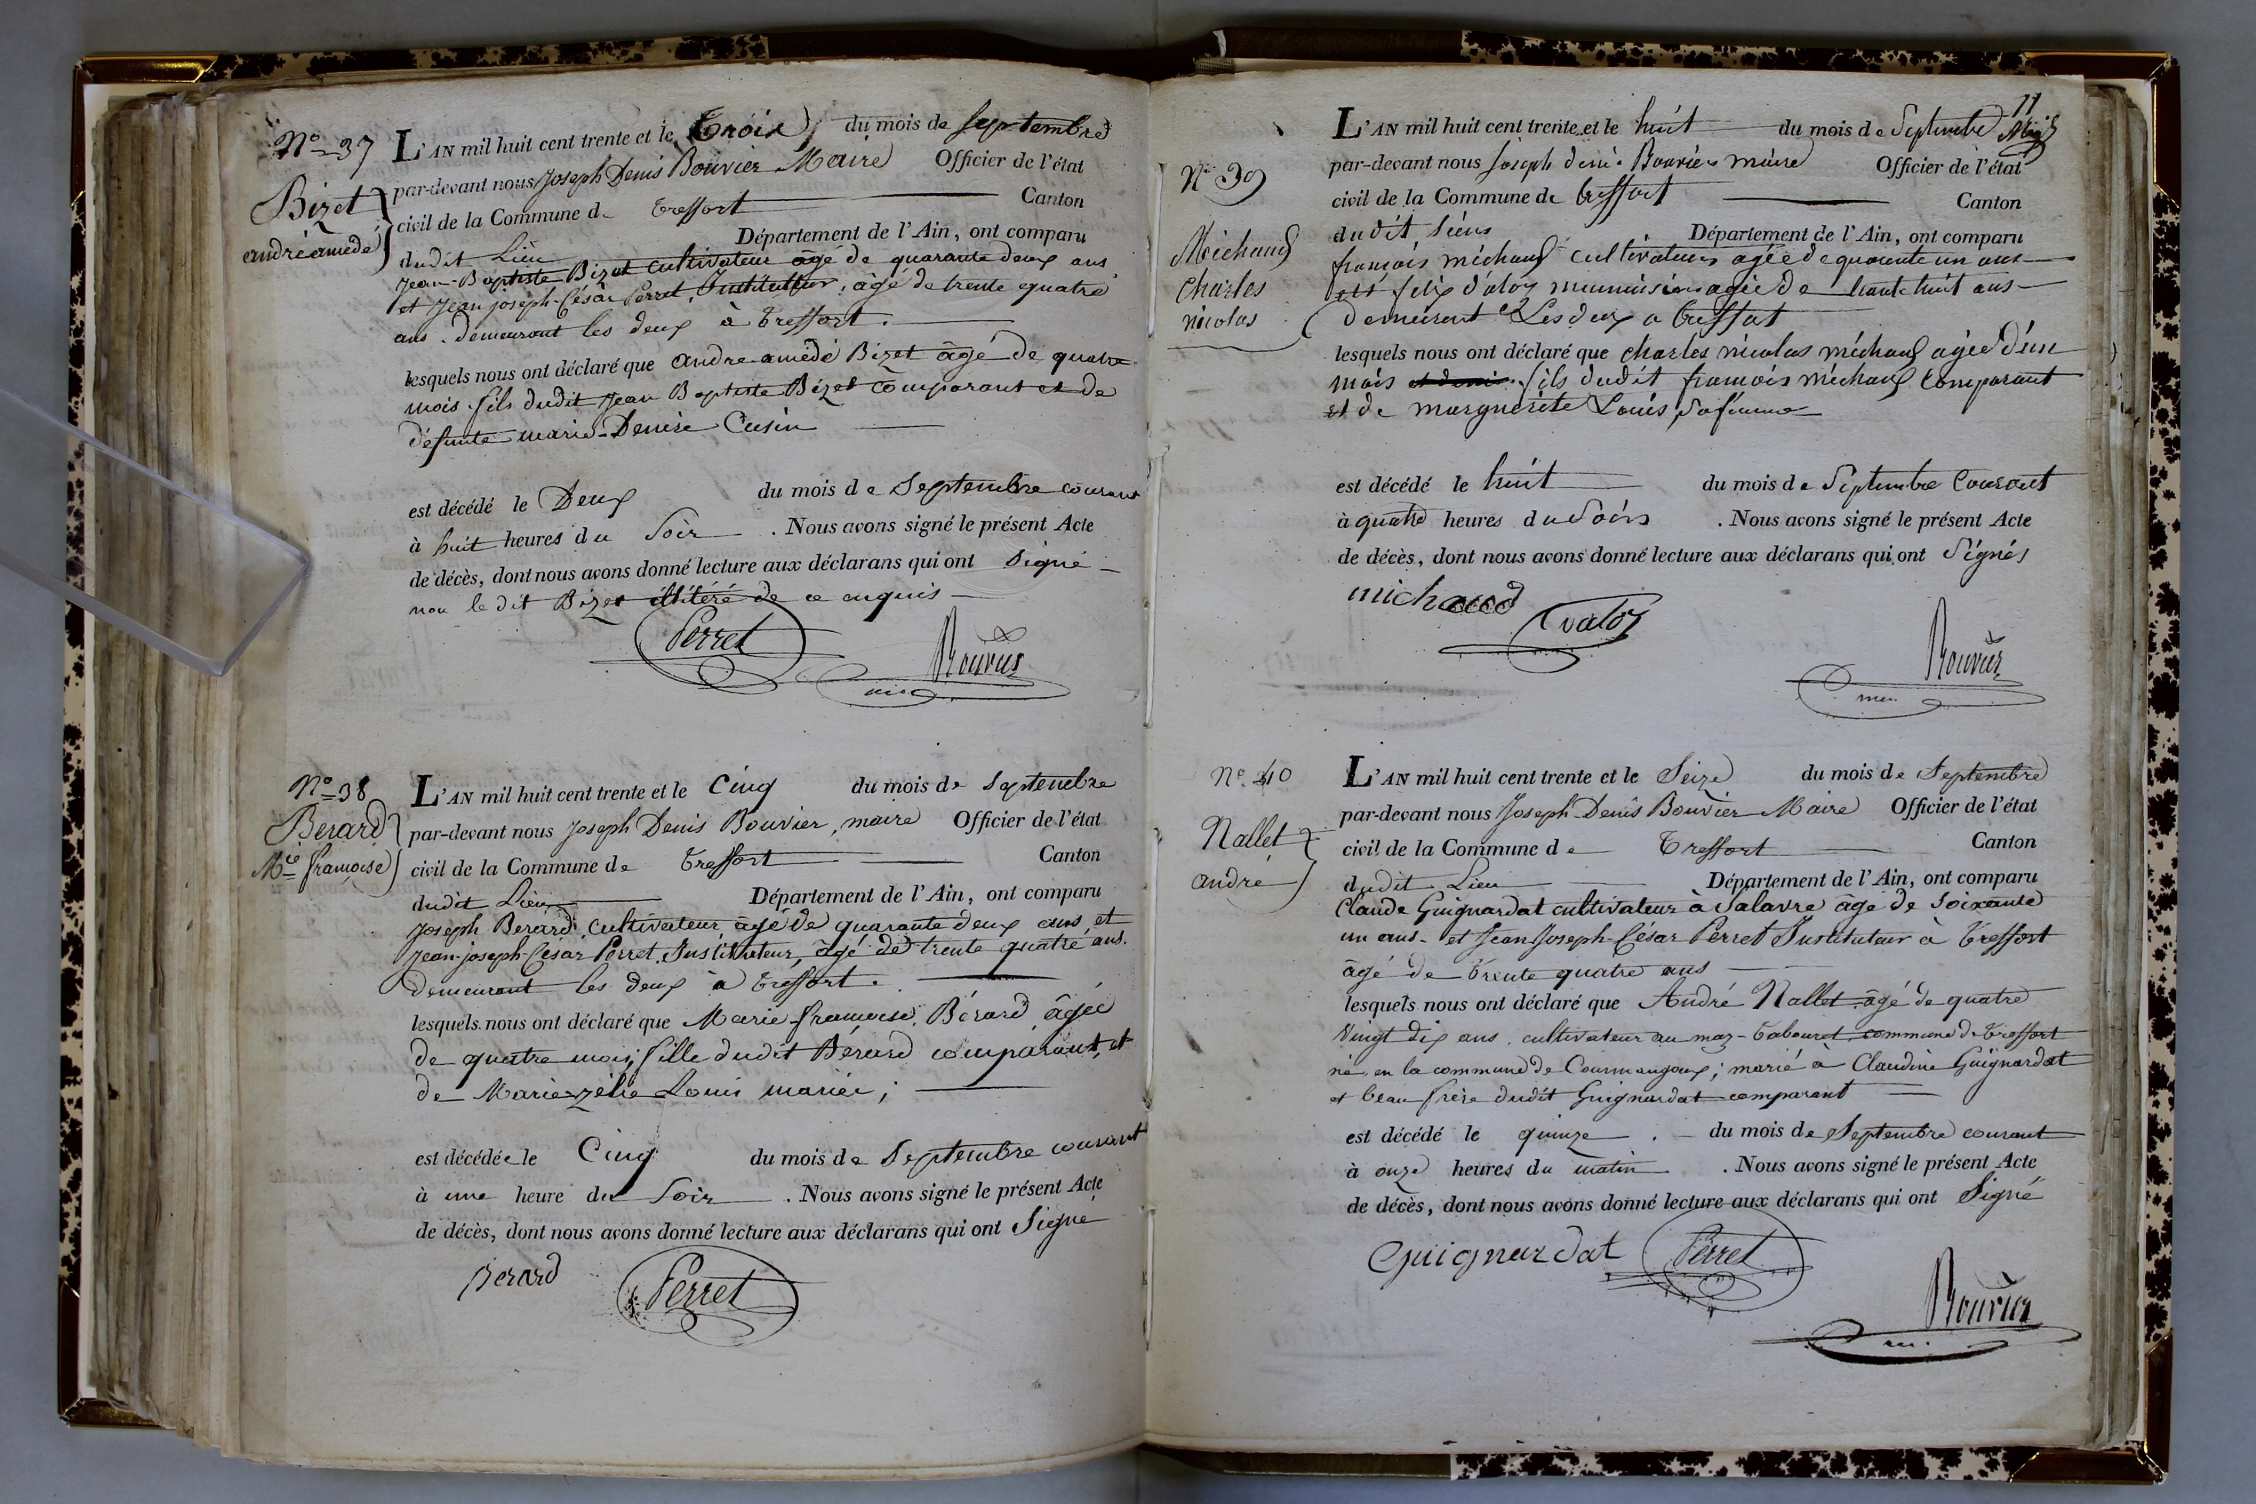 No 37
Bizet
andré amédé
L'AN mil huit cent trente et le Trois du mois de septembre
par-devant nous Joseph Denis Bouvier Maire Officier de l'état
civil de la Commune de Treffort Canton
dudit Lieu Département de l'Ain, ont comparu
Jean-Baptiste Bizet cultivateur agé de quarante deux ans
et Jean joseph-César Perret, Instituteur, âgé de trente quatre
ans. demeurant les deux à Treffort.
lesquels nous ont déclaré que andre amédé Bizet âgé de quatre
mois. fils dudit Jean Baptiste Bizet comparant et de
défunte marie-Denise Cusin
est décédé le Deux du mois de Septembre courant
à huit heures du Soir . Nous avons signé le présent Acte
de décès, dont nous avons donné lecture aux déclarans qui ont signé
non le dit Bizet illitéré de ce enquis
Perret
Bouvier
No 38
Berard
Mie françoise
L'AN mil huit cent trente et le Cinq du mois de Septembre
par-devant nous Joseph Denis Bouvier, maire Officier de l'état
civil de la Commune de Treffort Canton
dudit Lieu Département de l'Ain, ont comparu
Joseph Berard cultivateur âgé de quarante deux ans et
Jean-joseph-César Perret, Instituteur, âgé de trente quatre ans.
demeurant les deux à Treffort.
lesquels nous ont déclaré que Marie françoise Bérard âgée
de quatre mois, fille dudit Bérard comparant, et
de Marie zélie Louis mariée;
est décédée le Cinq du mois de Septembre courant
à une heure du Soir . Nous avons signé le présent Acte
de décès, dont nous avons donné lecture aux déclarans qui ont Signé
Berard
Perret
11
No 39
Michaud
Charles
nicolas
L'AN mil huit cent trente et le huit du mois de Septembre
par-devant nous Joseph denis Bouvier maire Officier de l'état
civil de la Commune de treffort Canton
dudit Lieus Département de l'Ain, ont comparu
françois michaud cultivateur agée de quarente un ans
felix valoy agée de trante huit ans
demeurent Les deux a treffort
lesquels nous ont déclaré que charles nicolas michaud agée d'un
mois et demi fils dudit françois michaud Comparant
et de marguerite Louis, sa femme
est décédé le huit du mois de Septembre Courant
à quatre heures du Soirs . Nous avons signé le présent Acte
de décès, dont nous avons donné lecture aux déclarans qui ont Signés
michaud
valoy
Bouvier
No 40
Nallet
andré
L'AN mil huit cent trente et le Seize du mois de Septembre
par-devant nous Joseph Denis Bouvier Maire Officier de l'état
civil de la Commune de Treffort Canton
dudit Lieu Département de l'Ain, ont comparu
Claude Guignardat cultivateur à Salavre âgé de soixante
un ans. et Jean Joseph-César Perret Instituteur à Treffort
âgé de trente quatre ans
lesquels nous ont déclaré que André Nallet âgé de quatre
Vingt dix ans, cultivateur au maz-Tabouret commune de Treffort
né en la commune de Courmangoux; marié à Claudine Guignardat
et beau frère dudit Guignardat comparant
est décédé le quinze . du mois de Septembre courant
à onze heures du matin . Nous avons signé le présent Acte
de décès, dont nous avons donné lecture aux déclarans qui ont Signé
Guignardat
Perret
Bouvier